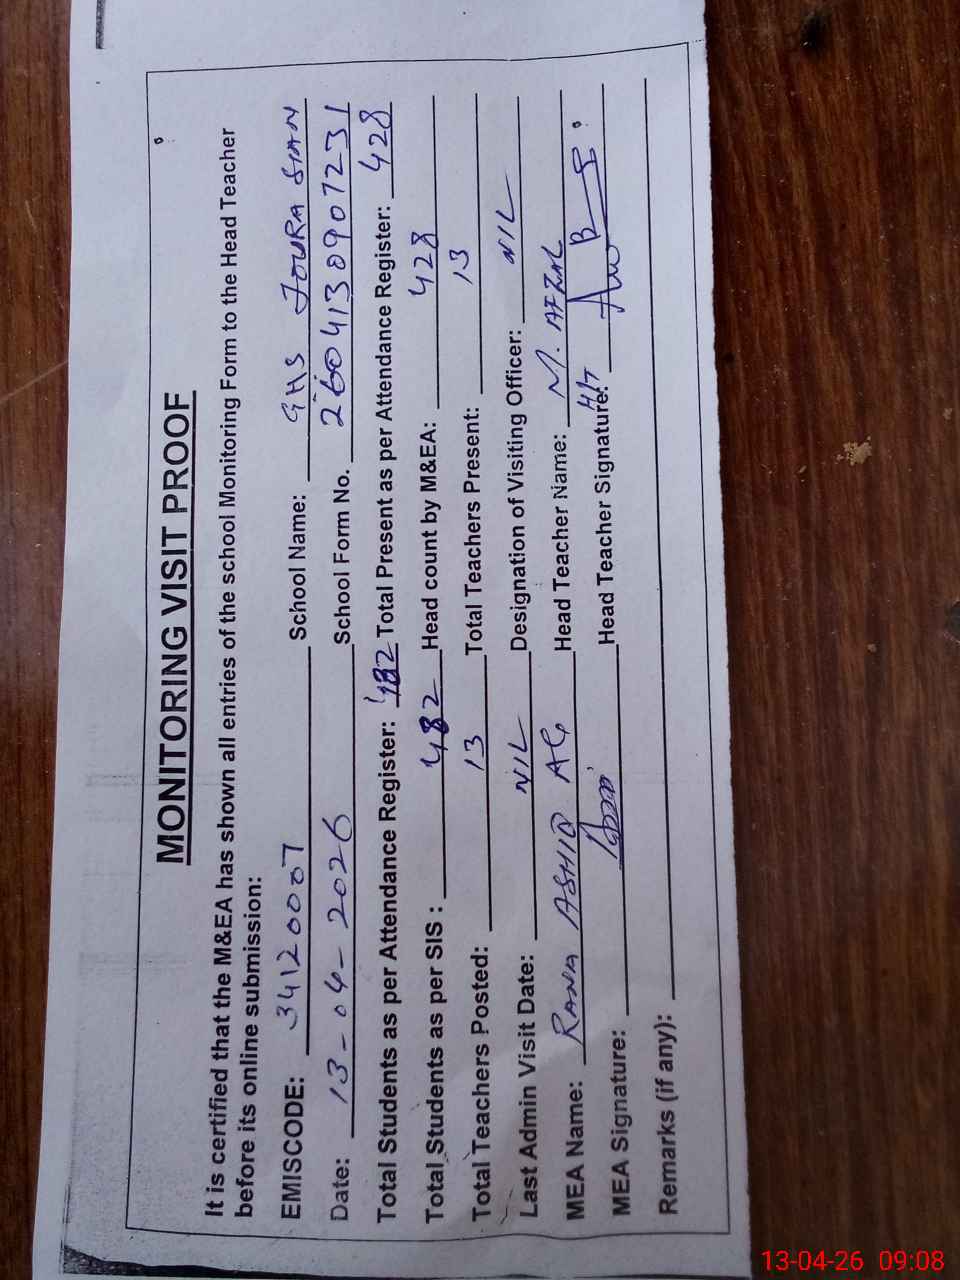 MONITORING VISIT PROOF
It is certified that the M&EA has shown all entries of the school Monitoring Form to the Head Teacher
before its online submission:
EMISCODE: 34120007 School Name: GHS JOURA SIAN
Date: 13-04-2026 School Form No. 2604130907231
Total Students as per Attendance Register: 482 Total Present as per Attendance Register: 428
Total Students as per SIS : 482 Head count by M&EA: 428
Total Teachers Posted: 13 Total Teachers Present: 13
Last Admin Visit Date: NIL Designation of Visiting Officer: NIL
MEA Name: RANA ASHIQ Head Teacher Name: M. AFZAL
MEA Signature: Head Teacher Signature:
Remarks (if any):
13-04-26 09:08